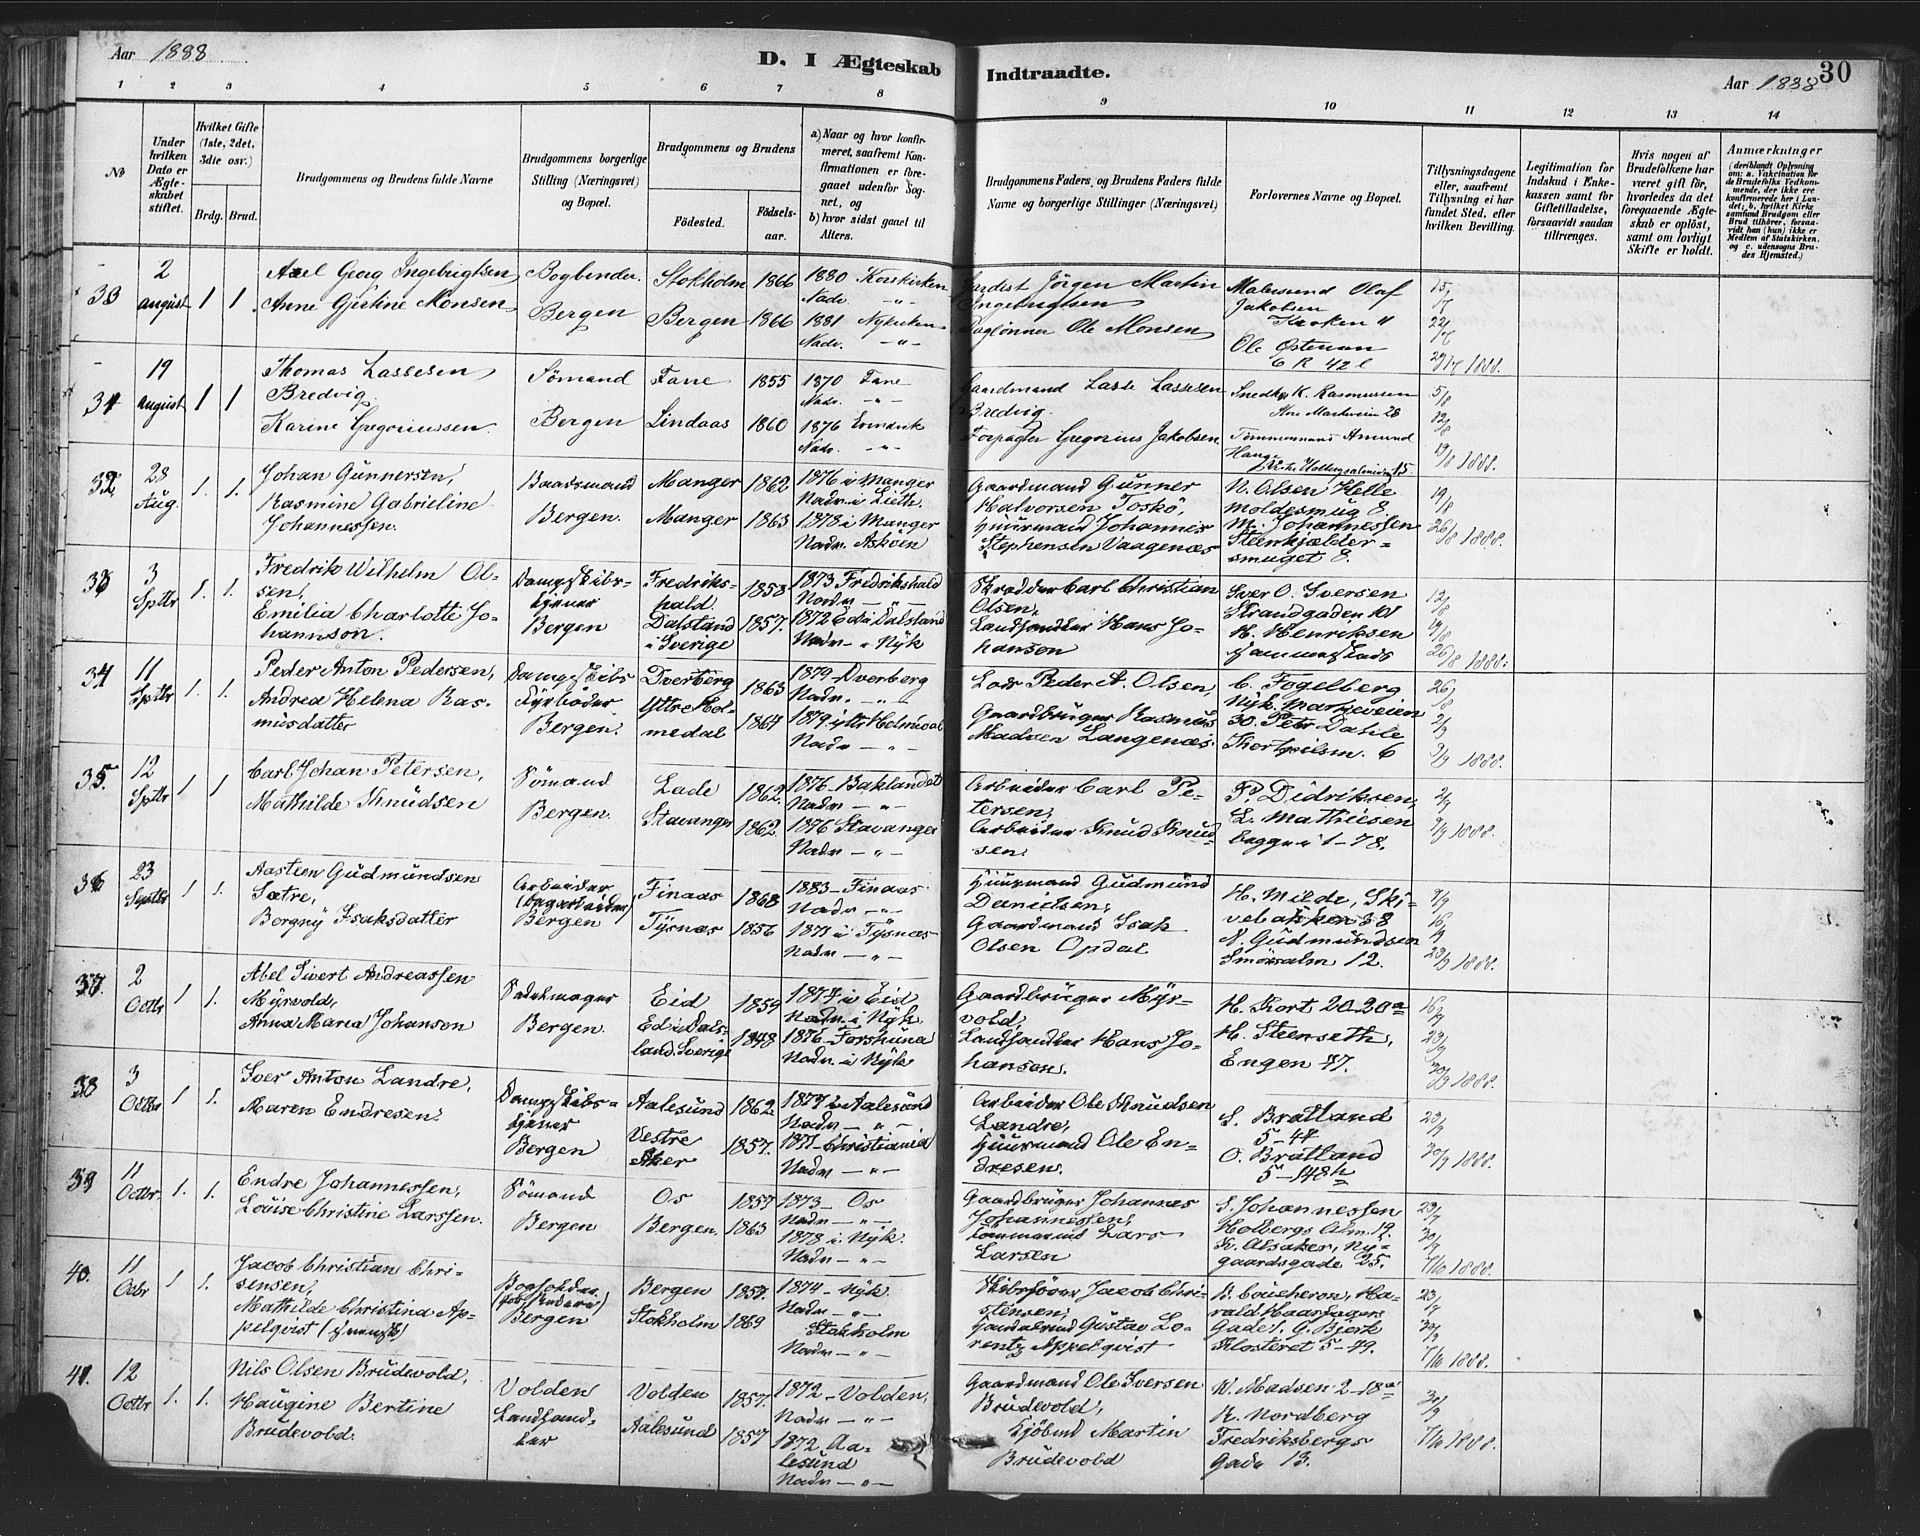 Aar 1888
D. I Ægteskab Indtraadte.
Aar 1888 30
1 2 3 4 5 6 7 8 9 10 11 12 13 14
No
Under hvilken Dato er Ægteskabet stiftet.
Hvilket Gifte (1ste, 2det, 3die osv.)
Brdg. Brud.
Brudgommens og Brudens fulde Navne
Brudgommens borgerlige Stilling (Næringsvei) og Bopæl.
Brudgommens og Brudens
Fødested. Fødselsaar.
a) Naar og hvor konfirmeret, saafremt Konfirmationen er foregaaet udenfor Sognet, og
b) hvor sidst ganet til Alters.
Brudgommens Faders, og Brudens Faders fulde Navne og borgerlige Stillinger (Næringsvei)
Forlovernes Navne og Bopæl.
Tillysningsdagene eller, saafremt Tillysning ei har fundet Sted, efter hvilken Bevilling.
Legitimation for Indskud i Enkekassen samt for Giftetilladelse, forsaavidt saadan tiltrænges.
Hvis nogen af Brudefolkene har været gift før, hvorledes da det foregaaende Ægteskab er opløst, samt om lovligt Skifte er holdt.
Anmærkninger
(deriblandt Oplysning om: a. Vakcination for de Brudefolks Vedkommende, der ikke ere konfirmerede her i Landet; b. hvilket Kirkesamfund Brudgom eller Brud tilhører, forsaavidt han (hun) ikke er Medlem af Statskirken, og c. udensogns Brudes Hjemsted.)
2 august 1 1
Axel Georg Ingebrigtsen
Anne Gjertine Monsen
Bogbinder
Bergen
Stokholm 1866
Bergen 1866
1880 Korskirken
Nadv. -"-
1881 Nykirken
Nadv. -"-
Jørgen Martin
Ingebrigtsen
Daglønner Ole Monsen
Olaf
Jakobsen
Kroken 11
Ole Østman
6 R 42 c
15/7
22/7
29/7 1888.
19 august 1 1
Thomas Lassesen
Bredvig
Karine Gregoriussen
Sömand
Bergen
Fane 1855
Lindaas 1860
1870 Fane
Nadv. -"-
1876 Evindvik
Nadv. -"-
Gaardmand Lasse Lassesen
Bredvig.
Forpagter Gregorius Jakobsen
Snedker K. Rasmussen
Tømmermand Amund
Hauge
5/8
12/8
19/8 1888.
32. 28 Aug. 1. 1.
Johan Gunnersen,
Rasmine Gabrieline
Johannessen.
Baadsmand
Bergen.
Manger 1862
Manger 1863
1876 i Manger
Nadv. i Lieth.
1878 i Manger
Nadv. Asköen
Gaardmand Gunner
Halvorsen Toskö,
Huusmand Johannes
Stephensen Vaagenæs
N. Olsen Helle
Moldesmug 8.
M. Johannessen
Steenkjælder-
smuget 8.
19/8
26/8 1888.
33 3 Sptbr 1. 1.
Fredrik Wilhelm Ol-
sen,
Emilia Charlotte Jo-
hannson.
Bergen
Fredriks-
hald. 1858
Dalsland
i Sverige 1857.
1873 Fredrikshald
Nadv. -"-
1872 Ed i Dalsland
Nadv. -"- Nyk
Skrædder Carl Christian
Olsen,
Landhandler Hans Jo-
hanson
Iver O. Iversen
Strandgaden
H. Henriksen
12/8
19/8
26/8 1888.
34 11 Sptbr 1. 1.
Peder Anton Pedersen,
Andrea Helena Ras-
musdatter
Dampskibs
Fyrböder
Bergen.
Dverberg 1863
Yttre Hol-
medal 1867
1879 Dverberg
Nadv. -"-
1879 i ytt. Holmedal
Nadv. -"-
Lods Peder A. Olsen,
Gaardbruger Rasmus
Madsen Langenæs.
C. Fogelberg
Nyk. Markeveien
30. Petr Dahle
Kortpilsm. 6
26/8
2/9
9/9 1888.
35. 12 Sptbr 1 1
Carl Johan Petersen,
Mathilde Knudsen
Sömand
Bergen.
Lade 1862.
Stavanger 1862.
1876 - Baklandet
Nadv -"-
1876 Stavanger
Nadv -"-
Arbeider Carl Pe-
tersen,
Arbeider Knud Knud-
sen.
P. Didriksen,
L. Mathiesen
begge i 1-78.
2/9
9/9 1888.
36 23 Septbr 1 1.
Aasteen Gudmundsen
Sætre,
Borgny Isaksdatter
Arbeider
Bergen
Finaas 1863
Tysnæs 1856
1883 - Finaas
Nadv -"-
1871 i Tysnæs
Nadv -"-
Huusmand Gudmund
Danielsen,
Gaardmand Isak
Olsen Opdal
H. Milde, Ski-
vebakken 38
N. Gudmundsen
Smörsalm 12.
9/9
16/9
23/9 1888.
37. 2 Octbr 1 1.
Abel Sivert Andreassen
Myrvold,
Anna Maria Johanson
Sadelmager
Bergen.
Eid 1859
Ed i Dals-
land. Sverige 1848
1874 i Eid
Nadv. i Nyk.
1876 - Torskuna
Nadv. i Nyk.
Gaardbruger Myr-
vold,
Landhandler Hans Jo-
hanson.
H. Kort 20-20a
H. Steenseth,
Engen 47.
16/9
23/9
30/9 1888.
38 3 Octbr 1. 1.
Iver Anton Landre,
Maren Endresen.
Bergen
Aalesund 1862
Vestre
Aker 1857.
1877 i Aalesund
Nadv -"-
1871 - Christiania
Nadv -"-
Arbeider Ole Knudsen
Landre,
Huusmand Ole En-
dresen.
S. Bratland
5-47
O. Bratland
5-148 h
23/9
30/9 1888.
39 11 Octbr. 1. 1.
Endre Johannessen,
Louise Christine Larssen.
Sömand
Bergen
Os 1857
Bergen. 1863
1873 - Os
Nadv -"-
1878 i Nyk.
Nadv -"-
Gaardbruger Johannes
Johannessen,
Lars
Larsen
S. Johannessen
Holbergs Alm. 19.
K. Alsaker, Ny-
gaardsgade 25.
23/9
30/9
7/10 1888.
40. 11 Ocbr 1 1.
Jacob Christian Chri-
sensen,
Mathilde Christina Ap-
pelqvist
Bogholder
Bergen
Bergen 1857.
Stokholm 1869
1874 - Nyk
Nadv -"-
Stokholm
Nadv -"-
Skibsfører Jacob Chri-
stensen,
Gustav Lo-
rentz Appelqvist
B. Coucheron, Ha-
rald Haarfagers
Gade 1. G. Bjerk
Klosteret 5-49.
23/9
30/9
7/10 1888.
41. 12 Octbr 1. 1.
Nils Olsen Brudevold,
Haugine Bertine
Brudevold.
Volden
Landhand-
ler
Volden 1857.
Aalesund 1857
1872 - Volden,
Nadv -"-
1872 Aa-
lesund
Nadv -"-
Gaardmand Ole Iversen
Brudevold,
Kjöbmd Martin
Brudevold
K. Madsen 2-18a
R. Nordberg
Fredriksbergs
Gade 13.
30/9
7/10 1888.